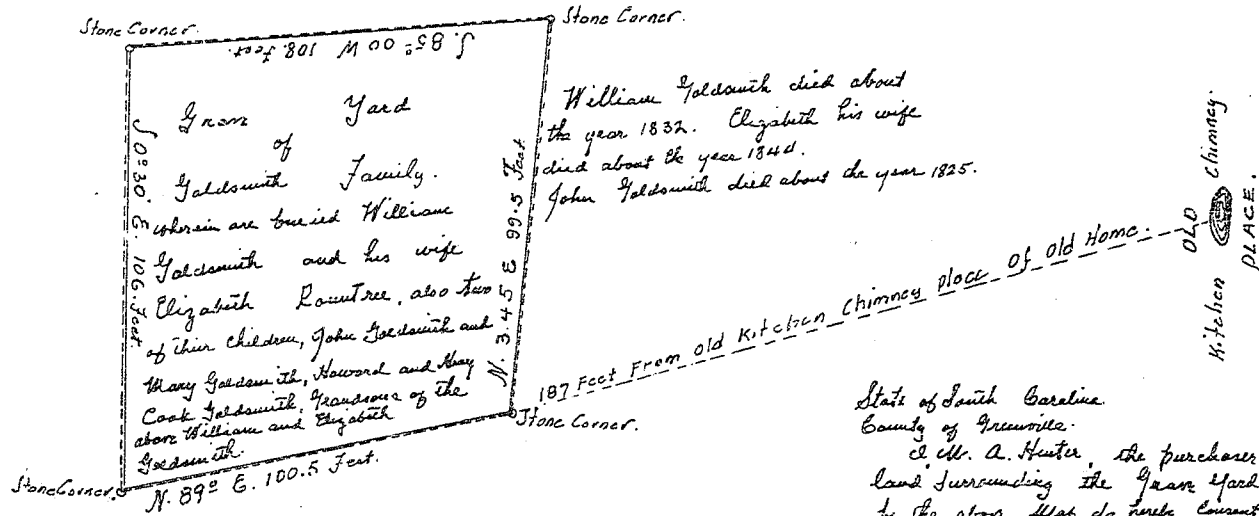 Stone Corner.
Stone Corner.
S. 85° 00 W 108. Feet.
Grave Yard
of
Goldsmith Family.
wherein are buried William
Goldsmith and his wife
Elizabeth Rountree, also two
of their children, John Goldsmith and
Mary Goldsmith, Howard and
Cook Goldsmith, Grandsons of the
above William and Elizabeth
Goldsmith.
S 0°30' E. 106. Feet.
N. 3.45 E 99.5 Feet
N. 89° E. 100.5 Feet.
Stone Corner.
Stone Corner.
William Goldsmith died about
the year 1832. Elizabeth his wife
died about the year 1844.
John Goldsmith died about the year 1825.
187 Feet From old Kitchen Chimney place of old Home.
OLD
Kitchen Chimney.
PLACE.
State of South Carolina
County of Greenville.
I, W. A. Hunter, the purchaser
land surrounding the Grave Yard
the above Map do hereby Consent